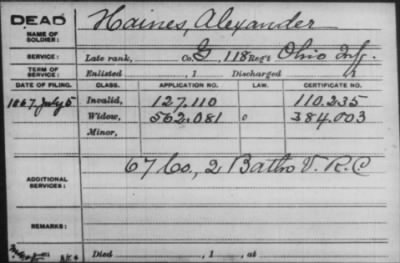 DEAD
NAME OF SOLDIER: Haines, Alexander
SERVICE: Late rank, Co. G, 118 Reg't Ohio Inf.
TERM OF SERVICE: Enlisted , 1 Discharged , 1
DATE OF FILING. CLASS. APPLICATION NO. LAW. CERTIFICATE NO.
1867 July 5 Invalid, 127.110 110.235
Widow, 562.081 384.003
Minor,
ADDITIONAL SERVICES: 67 Co, 2 Batln V. R. C
REMARKS:
Died , 1 , at